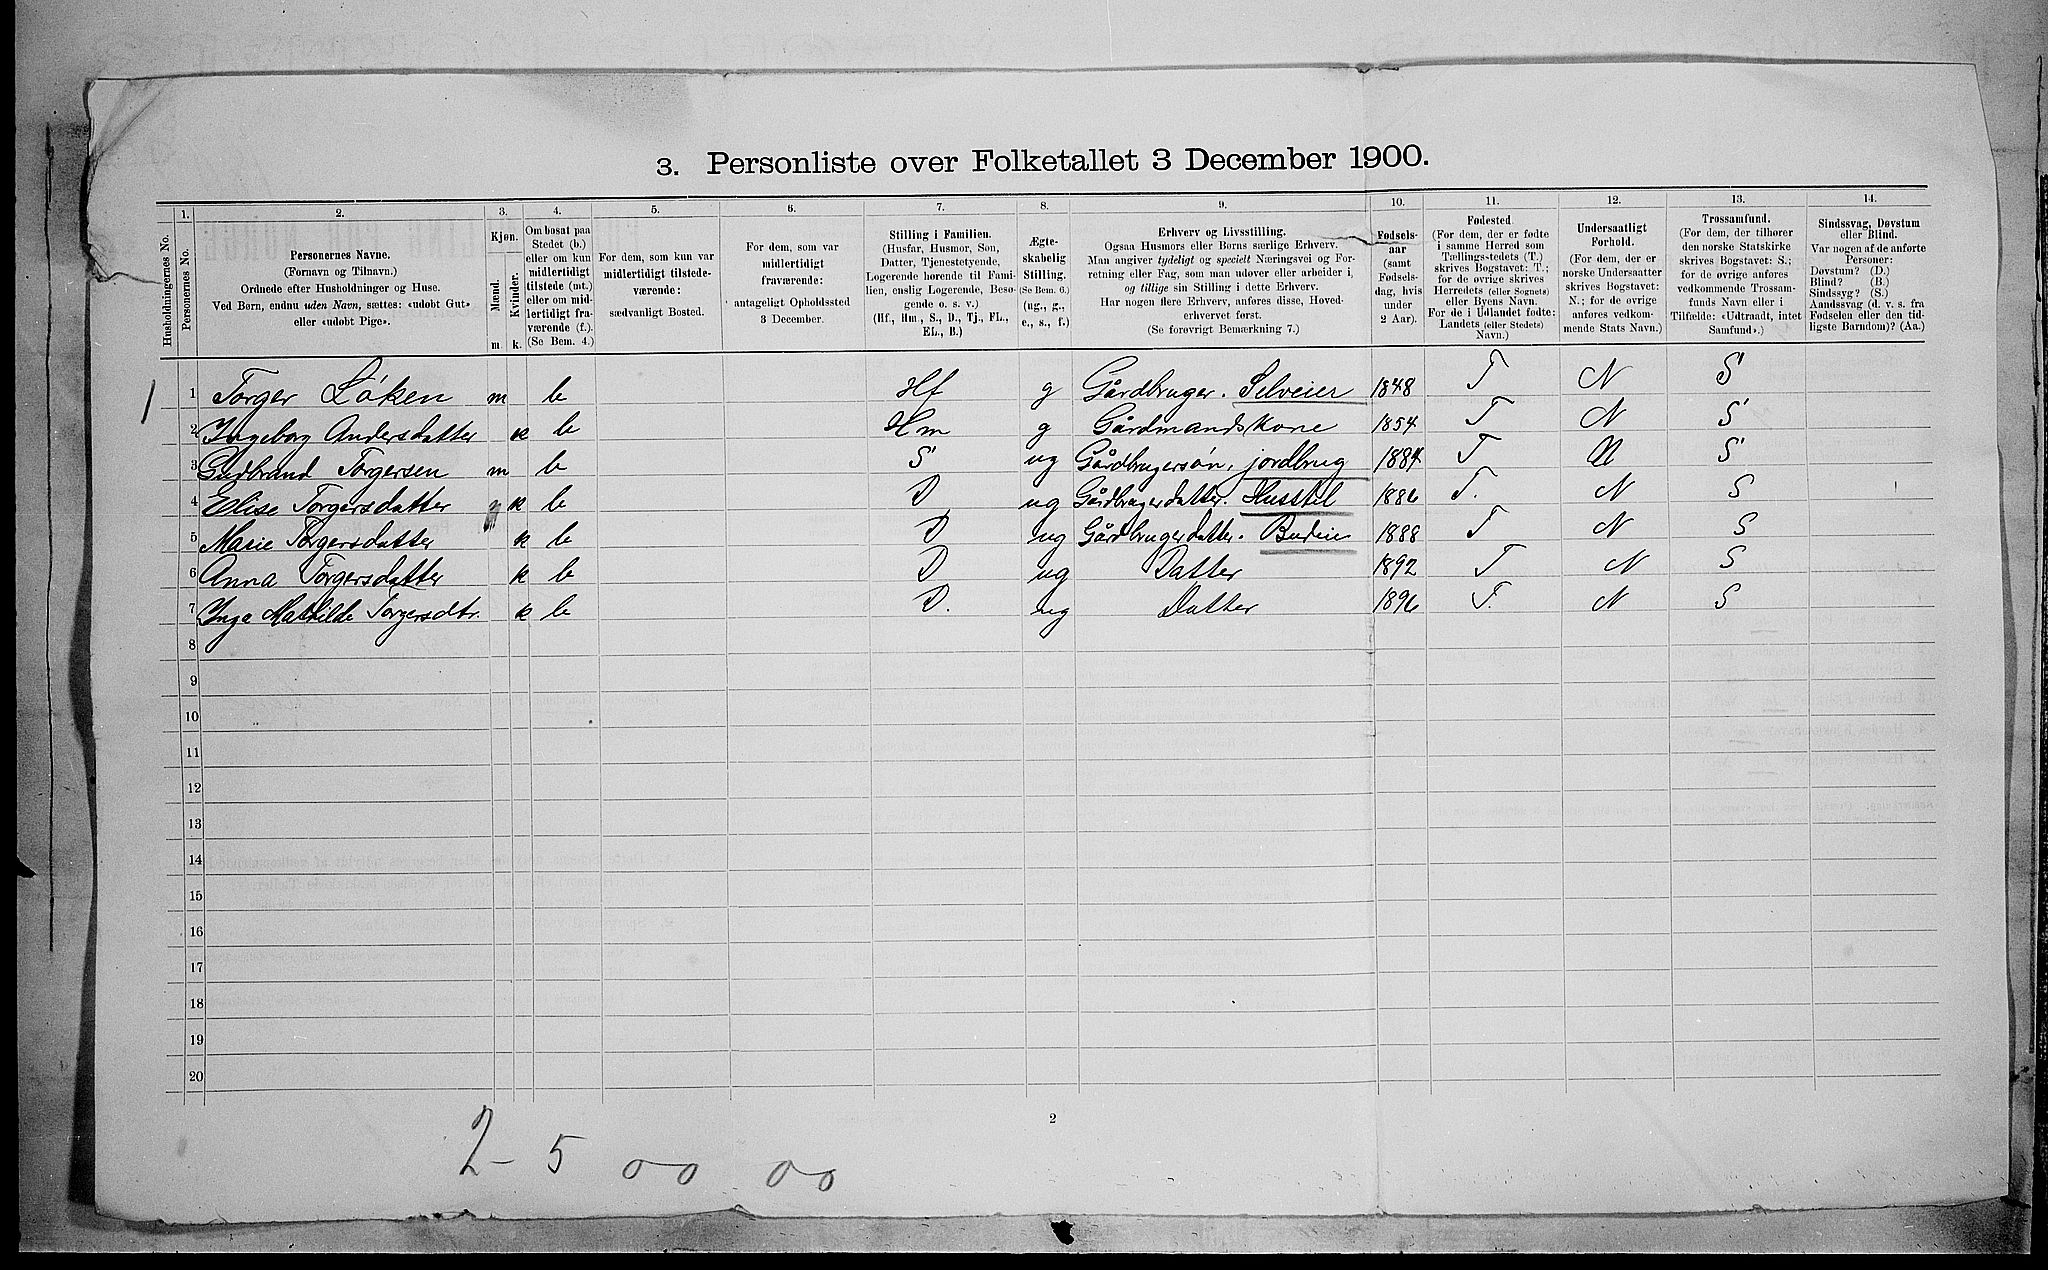 3. Personliste over Folketallet 3 December 1900.
Husholdningernes No.
1.
Personernes No.
2.
Personernes Navne.
(Fornavn og Tilnavn.)
Ordnede efter Husholdninger og Huse.
Ved Børn, endnu uden Navn, sættes: «udobt Gut»
eller «udobt Pige».
3.
Kjøn.
Mænd.
Kvinder.
m. k.
4.
Om bosat paa
Stedet (b.)
eller om kun
midlertidigt
tilstede (mt.)
eller om mid-
lertidigt fra-
værende (f.).
(Se Bem. 4.)
5.
For dem, som kun var
midlertidigt tilstede-
værende:
sædvanligt Bosted.
6.
For dem, som var
midlertidigt
fraværende:
antageligt Opholdssted
3 December.
7.
Stilling i Familien.
(Husfar, Husmor, Søn,
Datter, Tjenestetyende,
Logerende hørende til Fami-
lien, enslig Logerende, Besø-
gende o. s. v.)
(Hf., Hm., S., D., Tj., FL.,
EL., B.)
8.
Ægte-
skabelig
Stilling.
(Se Bem. 6.)
(ug., g.,
e., s., f.)
9.
Erhverv og Livsstilling.
Ogsaa Husmors eller Børns særlige Erhverv.
Man angiver tydeligt og specielt Næringsvei og For-
retning eller Fag, som man udover eller arbeider i,
og tillige sin Stilling i dette Erhverv.
Har nogen flere Erhverv, anføres disse, Hoved-
erhvervet først.
(Se forøvrigt Bemærkning 7.)
10.
Fødsels-
aar
(samt
Fødsels-
dag, hvis
under
2 Aar).
11.
Fødested.
(For dem, der er fødte
i samme Herred som
Tællings-stedets (T.)
skrives Bogstavet: T.;
for de øvrige skrives
Herredets (eller Sognets)
eller Byens Navn.
For de i Udlandet fødte:
Landets (eller Stedets)
Navn.)
12.
Undersaatligt
Forhold.
(For dem, der er
norske Undersaatter
skrives Bogstavet:
N.; for de øvrige
anføres vedkom-
mende Stats Navn.)
13.
Trossamfund.
(For dem, der tilhører
den norske Statskirke
skrives Bogstavet: S.;
for de øvrige anføres
vedkommende Trossam-
funds Navn eller i
Tilfælde: «Udtraadt, intet
Samfund».)
14.
Sindssvag, Døvstum
eller Blind.
Var nogen af de anførte
Personer:
Døvstum? (D.)
Blind? (B.)
Sindssyg? (S.)
Aandssvag (d. v. s. fra
Fødselen eller den tid-
ligste Barndom)? (Aa.)
1 1 Torger Løken m b Hf g Gårdbruger. Selveier 1848 T N S
2 Ingeborg Andersdatter k b Hm g Gårdmandskone 1854 T N S
3 Gudbrand Torgersen m b S ug Gårdbrugersøn, jordbrug 1884 T N S
4 Elise Torgersdatter k b D ug Gårdbrugerdatter. Husstel 1886 T. N S
5 Marie Torgersdatter k b D ug Gårdbrugerdatter. Budeie 1888 T N S
6 Anna Torgersdatter k b D ug Datter 1892 T N S
7 Inga Mathilde Torgersdtr. k b D. ug Datter 1896 T. N S
8
9
10
11
12
13
14
15
16
17
18
19
20
2
2 - 5 00 00